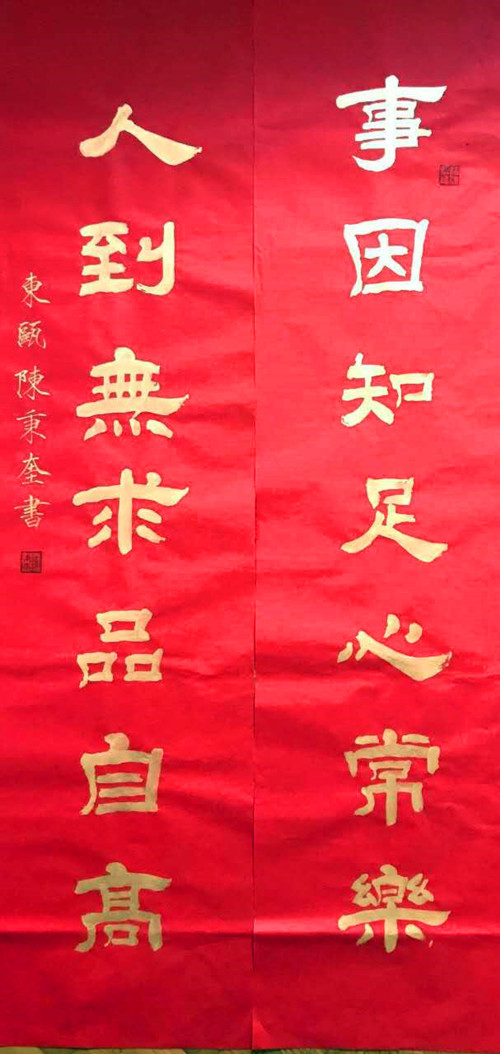 事因知足心常樂
人到無求品自高
東甌陳秉奎書